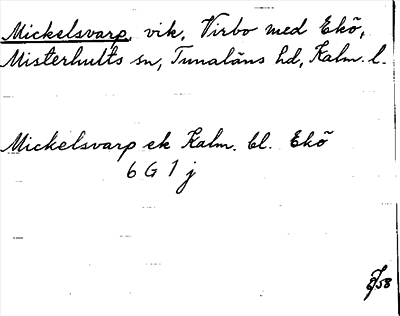 Mickelsvarp, vik, Virbo med Ekö,
Misterhults sn, Tunaläns hd, Kalm. l.
Mickelsvarp ek Kalm. bl. Ekö
6 G 1 j